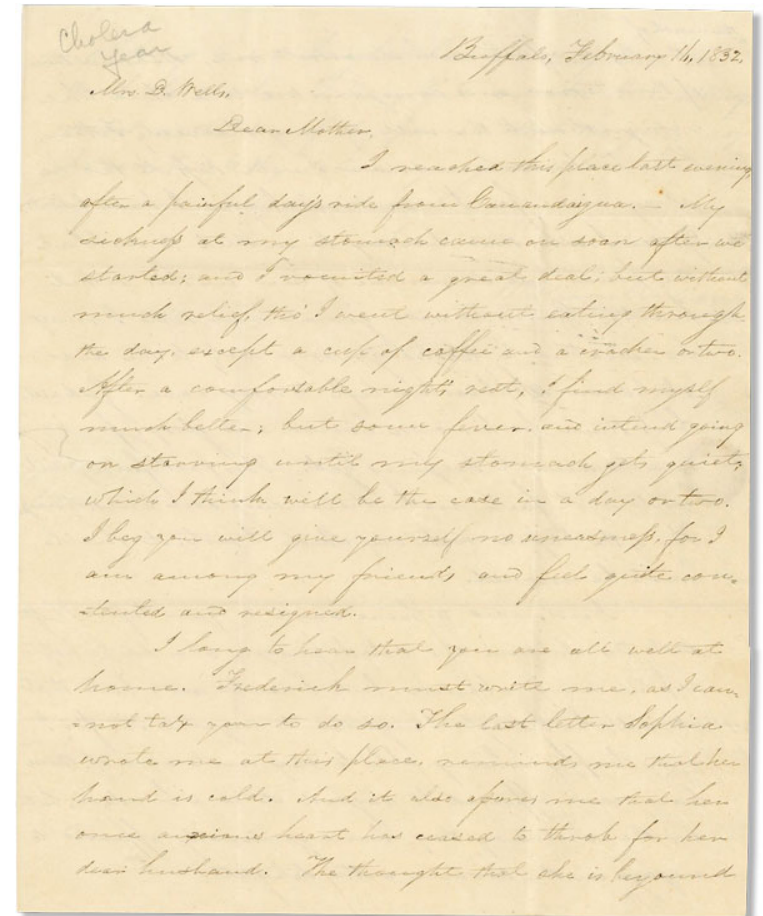 Cholera
Year
Buffalo, February 16, 1832.
Mrs. B. Wells,
Dear Mother,
I reached this place last evening,
after a painful day's ride from Canandaigua. — My
sickness at my stomach came on soon after we
started; and I vomited a great deal; but without
much relief, tho' I went without eating through
the day, except a cup of coffee and a cracker or two.
After a comfortable night's rest, I find myself
much better; but some fever, and intend going
on starving until my stomach gets quiet,
which I think will be the case in a day or two.
I beg you will give yourself no uneasiness, for I
am among my friends and feel quite con-
tented and resigned.
I long to hear that you are all well at
home. Frederick must write me, as I can-
not tax you to do so. The last letter Sophia
wrote me at this place, reminds me that her
hand is cold. And it also me that her
once anxious heart has ceased to throb for her
dear husband. The thought that she is beyound